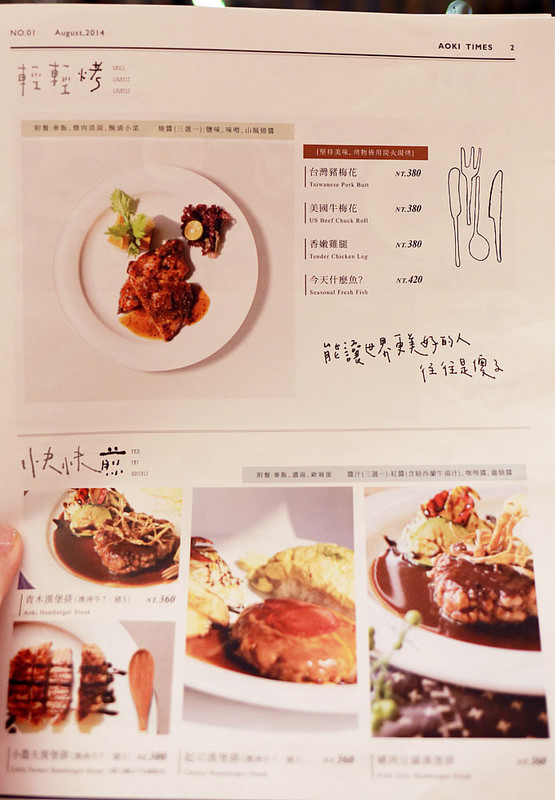 NO.01 August,2014
AOKI TIMES 2
輕輕烤
GRILL
LIGHTLY
LIGHTLY
附餐:麥飯, 燉肉清湯, 醃漬小菜 燒醬(三選一):鹽味, 味噌, 山城燒醬
[堅持美味, 烤物皆用炭火現烤]
台灣豬梅花 NT.380
Taiwanese Pork Butt
美國牛梅花 NT.380
US Beef Chuck Roll
香嫩雞腿 NT.380
Tender Chicken Leg
今天什麼魚? NT.420
Seasonal Fresh Fish
能讓世界更美好的人
往往是傻子
快快煎
PAN
FRY
QUICKLY
附餐:麥飯, 濃湯, 溫泉蛋 醬汁(三選一):紅醬(含紐西蘭牛滷汁), 咖哩醬, 薑燒醬
青木漢堡排(澳洲牛7 : 豬3) NT.360
Aoki Hamburger Steak
小農夫漢堡排(澳洲牛7 : 豬3) NT.300
Little Farmer Hamburger Steak
起司漢堡排(澳洲牛7 : 豬3) NT.360
Cheese Hamburger Steak
豬肉豆腐漢堡排 NT.360
Pork Tofu Hamburger Steak